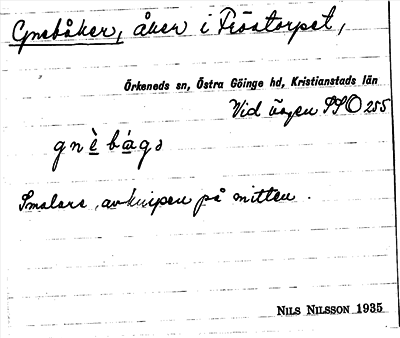 Gnebåker, åker i Tröstorpet,
Örkeneds sn, Östra Göinge hd, Kristianstads län
Vid vägen SSO 255
gnè bágə
Smalare, avknipen på mitten.
NILS NILSSON 1935